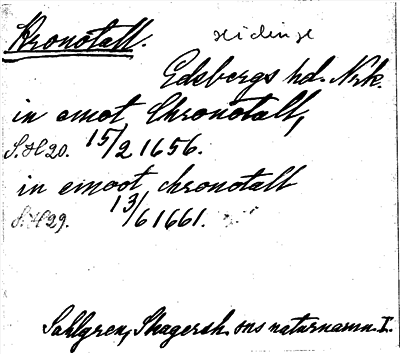 Kronotall. Hidinge
Edsbergs hd. Nrk.
in emot Chronotall,
S.H 20. 15/2 1656.
in emoot chronotall
S.H 29. 13/6 1661.
Sahlgren, Skagersh. sns naturnamn I.